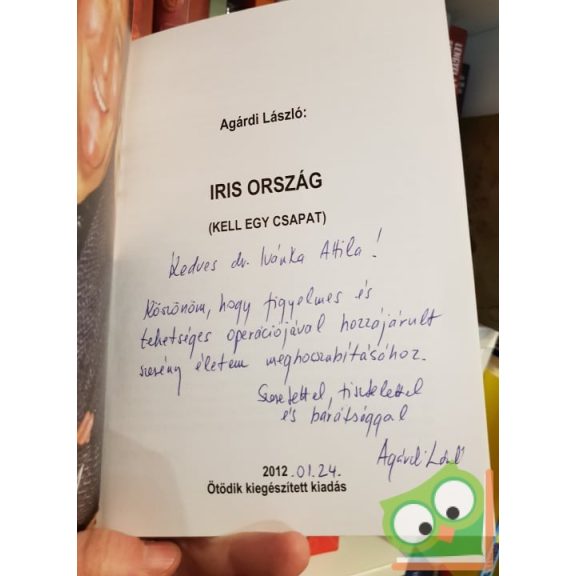 Agárdi László:
IRIS ORSZÁG
(KELL EGY CSAPAT)
Kedves dr. Ivánka Attila!
Köszönöm, hogy figyelmes és
tehetséges operációjával hozzájárult
szerény életem meghosszabításához.
Szeretettel, tisztelettel
és barátsággal
Agárdi László
2012.01.24.
Ötödik kiegészített kiadás